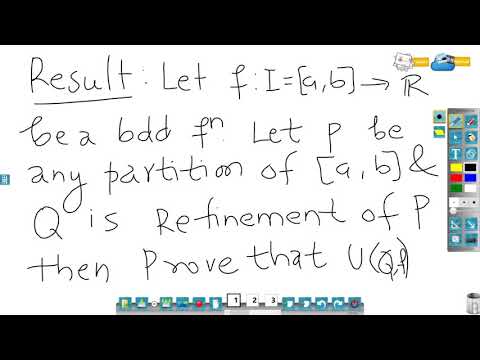 Result: Let f: I=[a,b]→ℝ
be a bdd fⁿ. Let P be
any partition of [a,b] &
Q is Refinement of P
then Prove that U(Q,f)
1 2 3